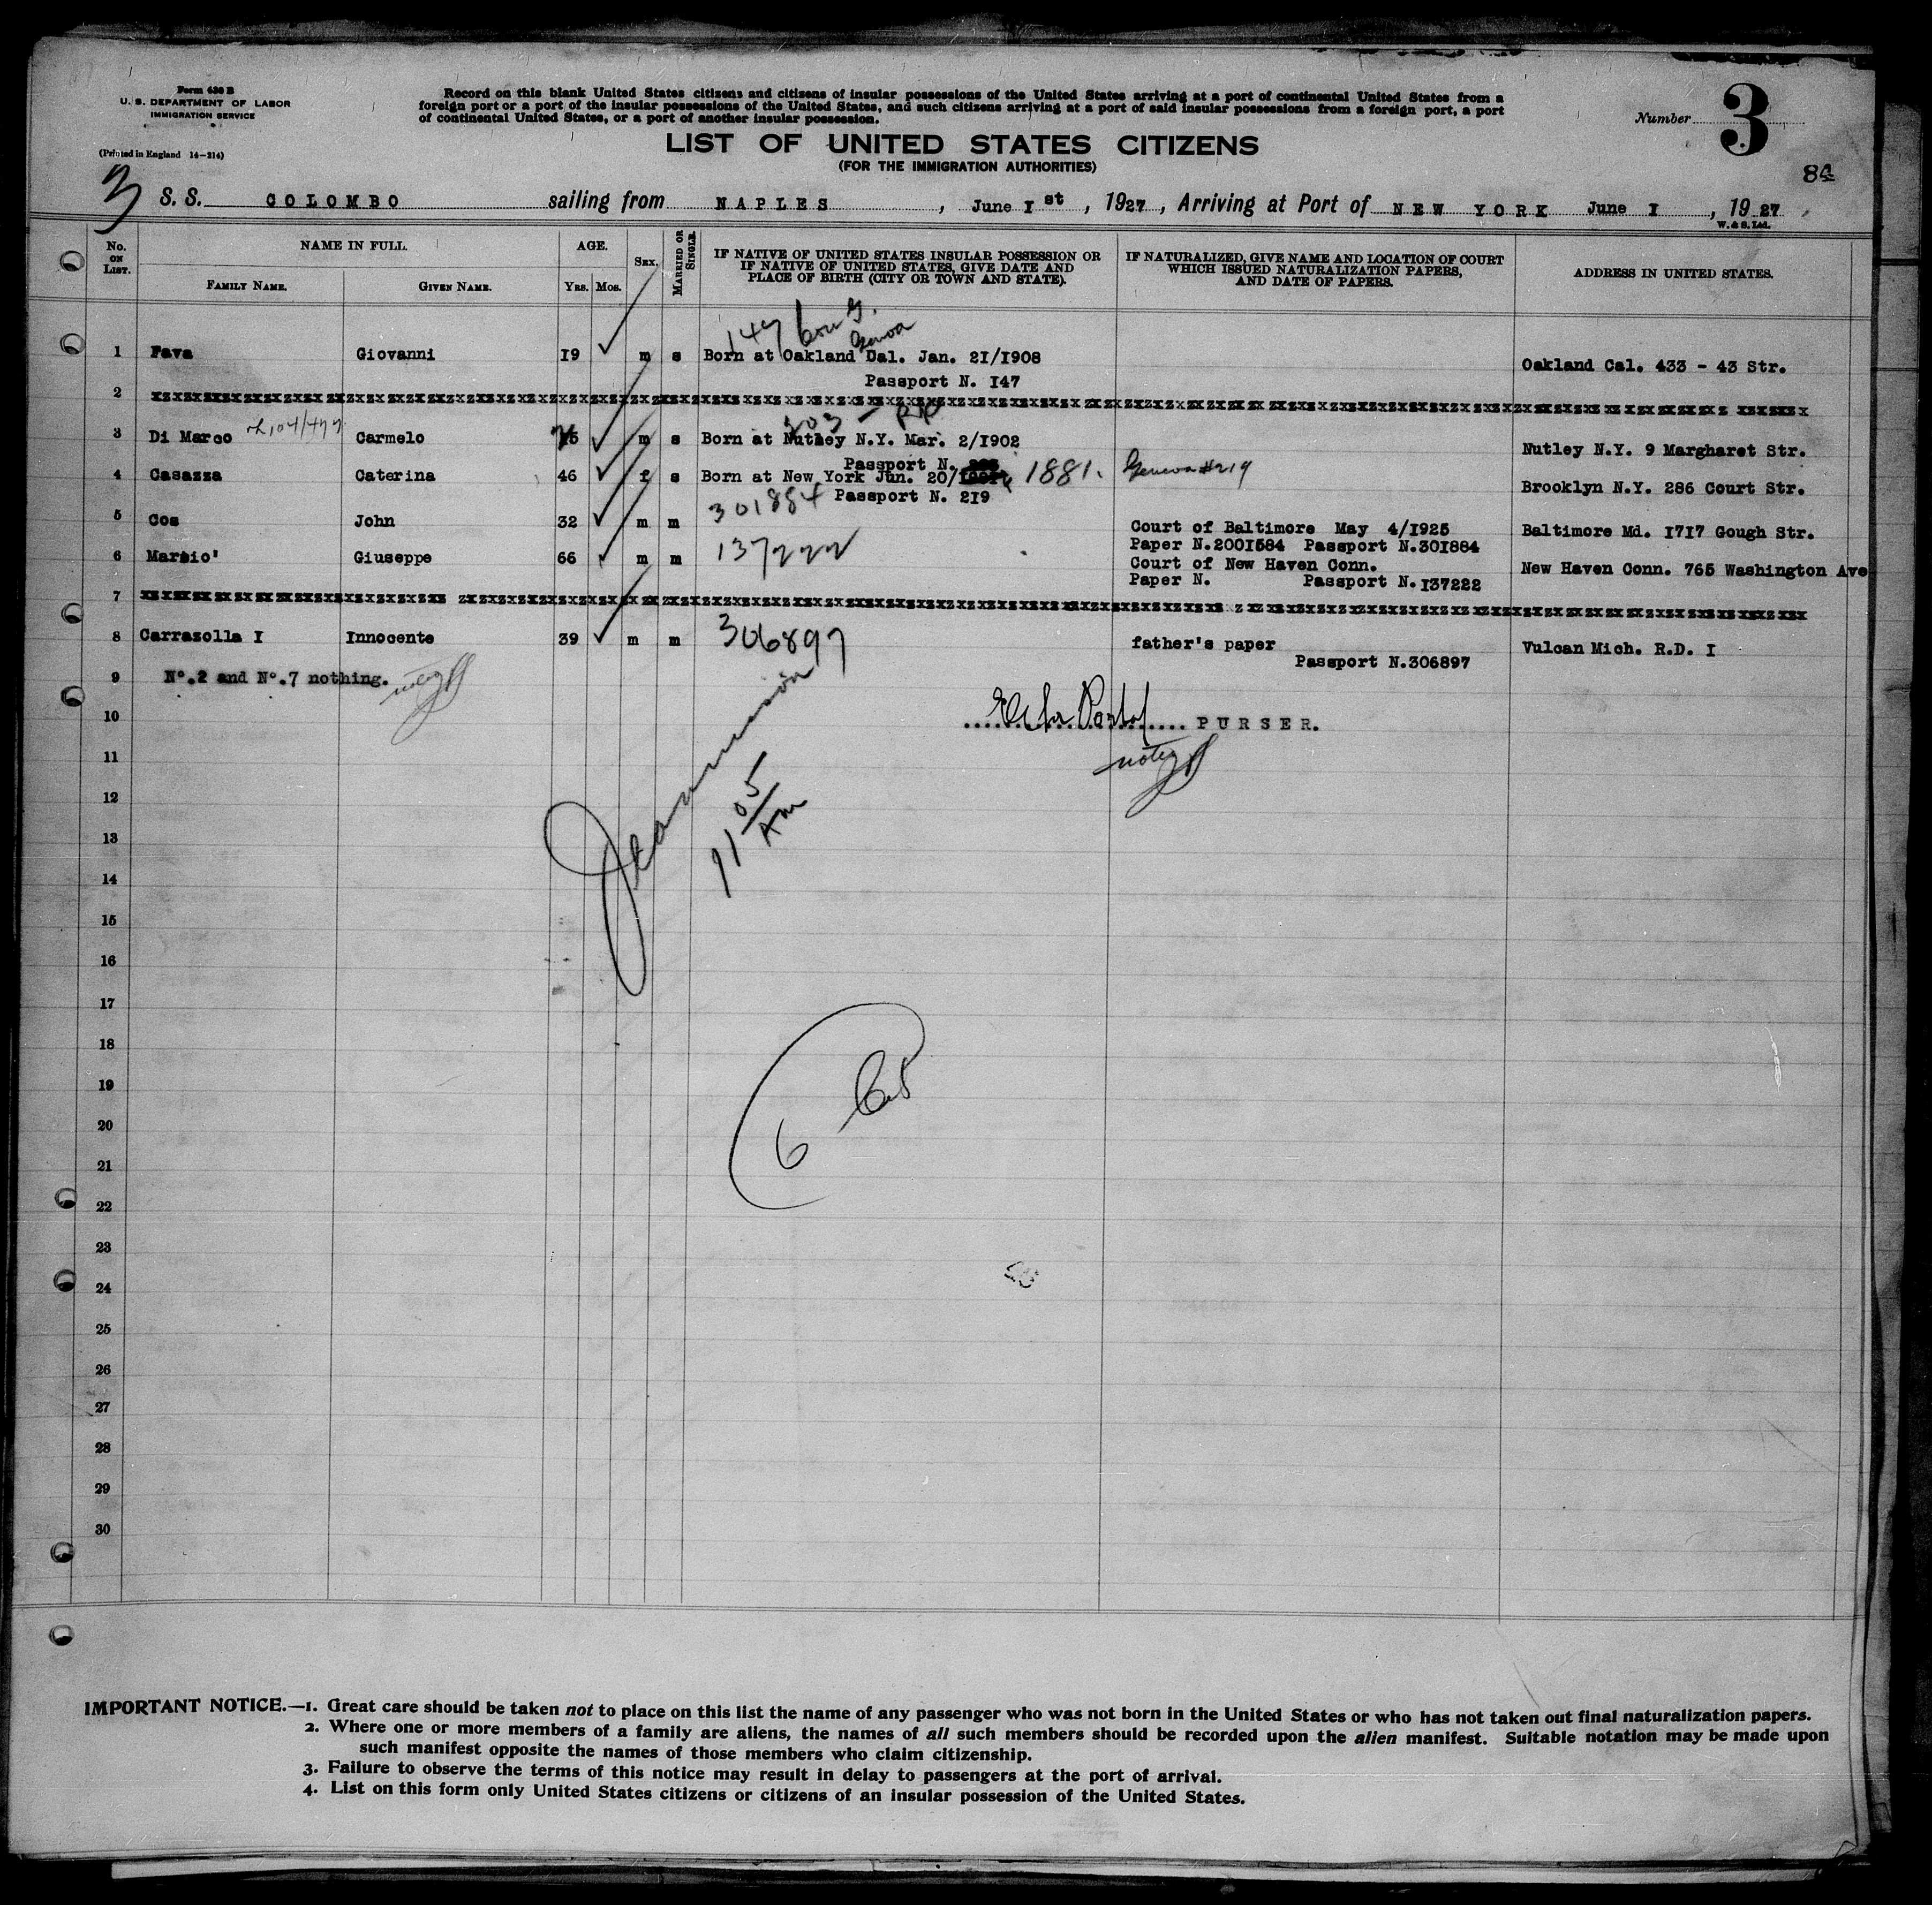 Form 630 B
U. S. DEPARTMENT OF LABOR
IMMIGRATION SERVICE
(Printed in England 14-214)
Record on this blank United States citizens and citizens of insular possessions of the United States arriving at a port of continental United States from a
foreign port or a port of the insular possessions of the United States, and such citizens arriving at a port of said insular possessions from a foreign port, a port
of continental United States, or a port of another insular possession.
LIST OF UNITED STATES CITIZENS
(FOR THE IMMIGRATION AUTHORITIES)
Number 3
84
3 S. S. COLOMBO sailing from NAPLES, June I st, 1927, Arriving at Port of NEW YORK June I, 1927
W. & S. Ltd.
No. ON LIST.
NAME IN FULL.
FAMILY NAME.
GIVEN NAME.
AGE.
YRS. MOS.
SEX.
MARRIED OR SINGLE.
IF NATIVE OF UNITED STATES INSULAR POSSESSION OR
IF NATIVE OF UNITED STATES, GIVE DATE AND
PLACE OF BIRTH (CITY OR TOWN AND STATE).
IF NATURALIZED, GIVE NAME AND LOCATION OF COURT
WHICH ISSUED NATURALIZATION PAPERS,
AND DATE OF PAPERS.
ADDRESS IN UNITED STATES.
147 Con G.
Genoa
1 Fava Giovanni 19 m s Born at Oakland Cal. Jan. 2I/1908 Oakland Cal. 433 - 43 Str.
Passport N. I47
2
203
3 Di Marco Carmelo 25 m s Born at Nutley N.Y. Mar. 2/1902 Nutley N.Y. 9 Margharet Str.
Passport N.
4 Casazza Caterina 46 f s Born at New York Jun. 20/ 1881. Genoa #219 Brooklyn N.Y. 286 Court Str.
Passport N. 2I9
5 Cos John 32 m m 301884 Court of Baltimore May 4/I925 Baltimore Md. I7I7 Gough Str.
Paper N.200I584 Passport N.30I884
6 Marzio' Giuseppe 66 m m 137222 Court of New Haven Conn. New Haven Conn. 765 Washington Ave
Paper N. Passport N.I37222
7
8 Carrasolla I Innocente 39 m m 306897 father's paper Vulcan Mich. R.D. I
Passport N.306897
9 N°.2 and N°.7 nothing.
10 PURSER.
11
11 05 Am
12
13
14
15
16
17
18
19
20
6
21
22
23
24
25
26
27
28
29
30
IMPORTANT NOTICE.—1. Great care should be taken not to place on this list the name of any passenger who was not born in the United States or who has not taken out final naturalization papers.
2. Where one or more members of a family are aliens, the names of all such members should be recorded upon the alien manifest. Suitable notation may be made upon
such manifest opposite the names of those members who claim citizenship.
3. Failure to observe the terms of this notice may result in delay to passengers at the port of arrival.
4. List on this form only United States citizens or citizens of an insular possession of the United States.